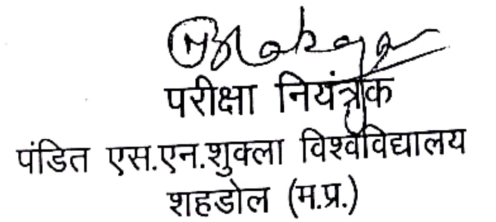 परीक्षा नियंत्रक
पंडित एस.एन.शुक्ला विश्वविद्यालय
शहडोल (म.प्र.)